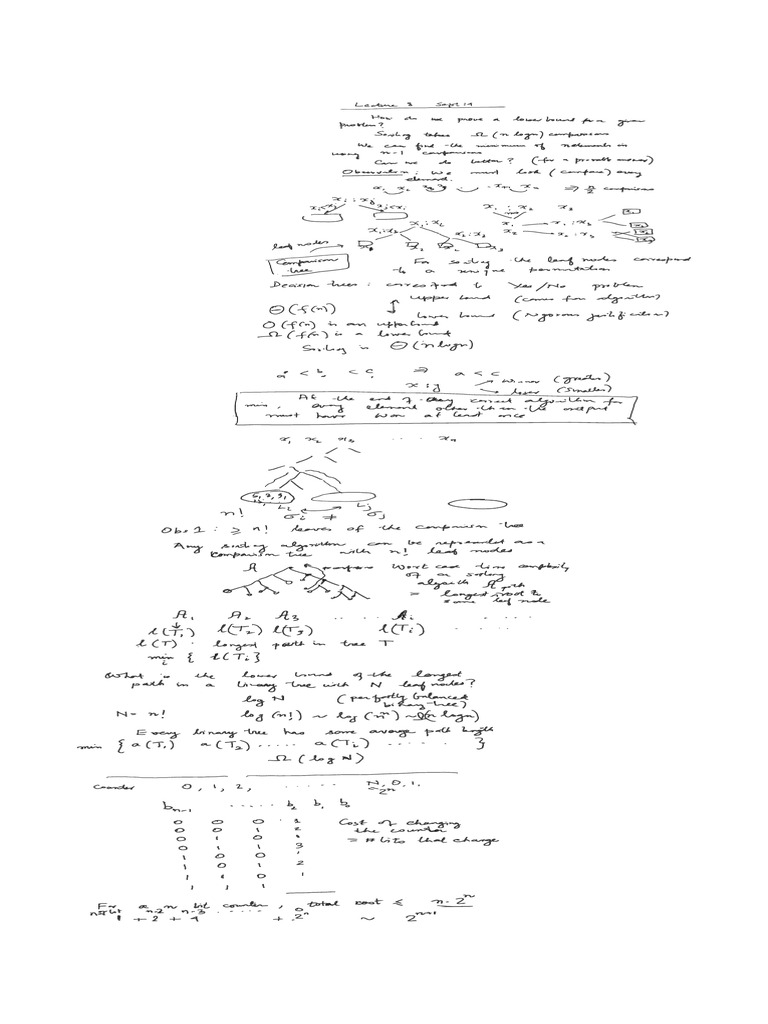 Lecture 3 Sept 14
How do we prove a lower bound for a given
problem?
Sorting takes Ω(n logn) comparisons
We can find the minimum of n elements in
using n-1 comparisons
Can we do better? (for a provable answer)
Observation: We must look (compare) every
element.
x₁ x₂ x₃ xₙ ⇒ n/2 comparisons
xᵢ : xⱼ
xᵢ<xⱼ
x₁ : x₂ x₃
x₁ : x₂
x₁ x₁ : x₃
x₁:x₃ x₂:x₃
x₂ x₂ : x₃
leaf nodes
Comparison
tree
For sorting the leaf nodes correspond
to a unique permutation
Decision trees: correspond to Yes/No problem
upper bound (comes from algorithm)
Θ(f(n))
lower bound (rigorous justification)
O(f(n)) is an upper bound
Ω(f(n)) is a lower bound
Sorting is Θ(n logn)
a < b < c ⇒ a < c
x : y
winner (greater)
loser (smaller)
At the end of any correct algorithm for
min, every element other than the output
must have won at least once
x₁ x₂ x₃ .... xₙ
Lᵢ Lⱼ
n! σᵢ ≠ σⱼ
Obs 1: ≥ n! leaves of the comparison tree
Any sorting algorithm can be represented as a
comparison tree with n! leaf nodes
A
Worst case time complexity
of a sorting
algorithm A
= longest root to
some leaf node
A₁ A₂ A₃ ..... Aᵢ .....
l(T₁) l(T₂) l(T₃) l(Tᵢ) .....
l(T) longest path in tree T
min { l(Tᵢ)}
i
What is the lower bound of the longest
path in a binary tree with N leaf nodes?
log N (perfectly balanced
binary tree)
N = n! log(n!) ~ log(nⁿ) ~ Ω(n logn)
Every binary tree has some average path length
min { a(T₁) a(T₂) ..... a(Tᵢ) ...... }
Ω(log N)
Counter 0, 1, 2, ...... N, 0, 1.
~2ⁿ
bₙ₋₁ ..... b₂ b₁ b₀
0 0 0 1
0 0 1 2
0 1 0 1
0 1 1 3
1 0 0 1
1 0 1 2
1 1 0 1
1 1 1
Cost of changing
the counter
= # bits that change
For a n bit counter, total cost ≤ n·2ⁿ
1 + 2 + 4 ..... + 2ⁿ ~ 2ⁿ⁺¹